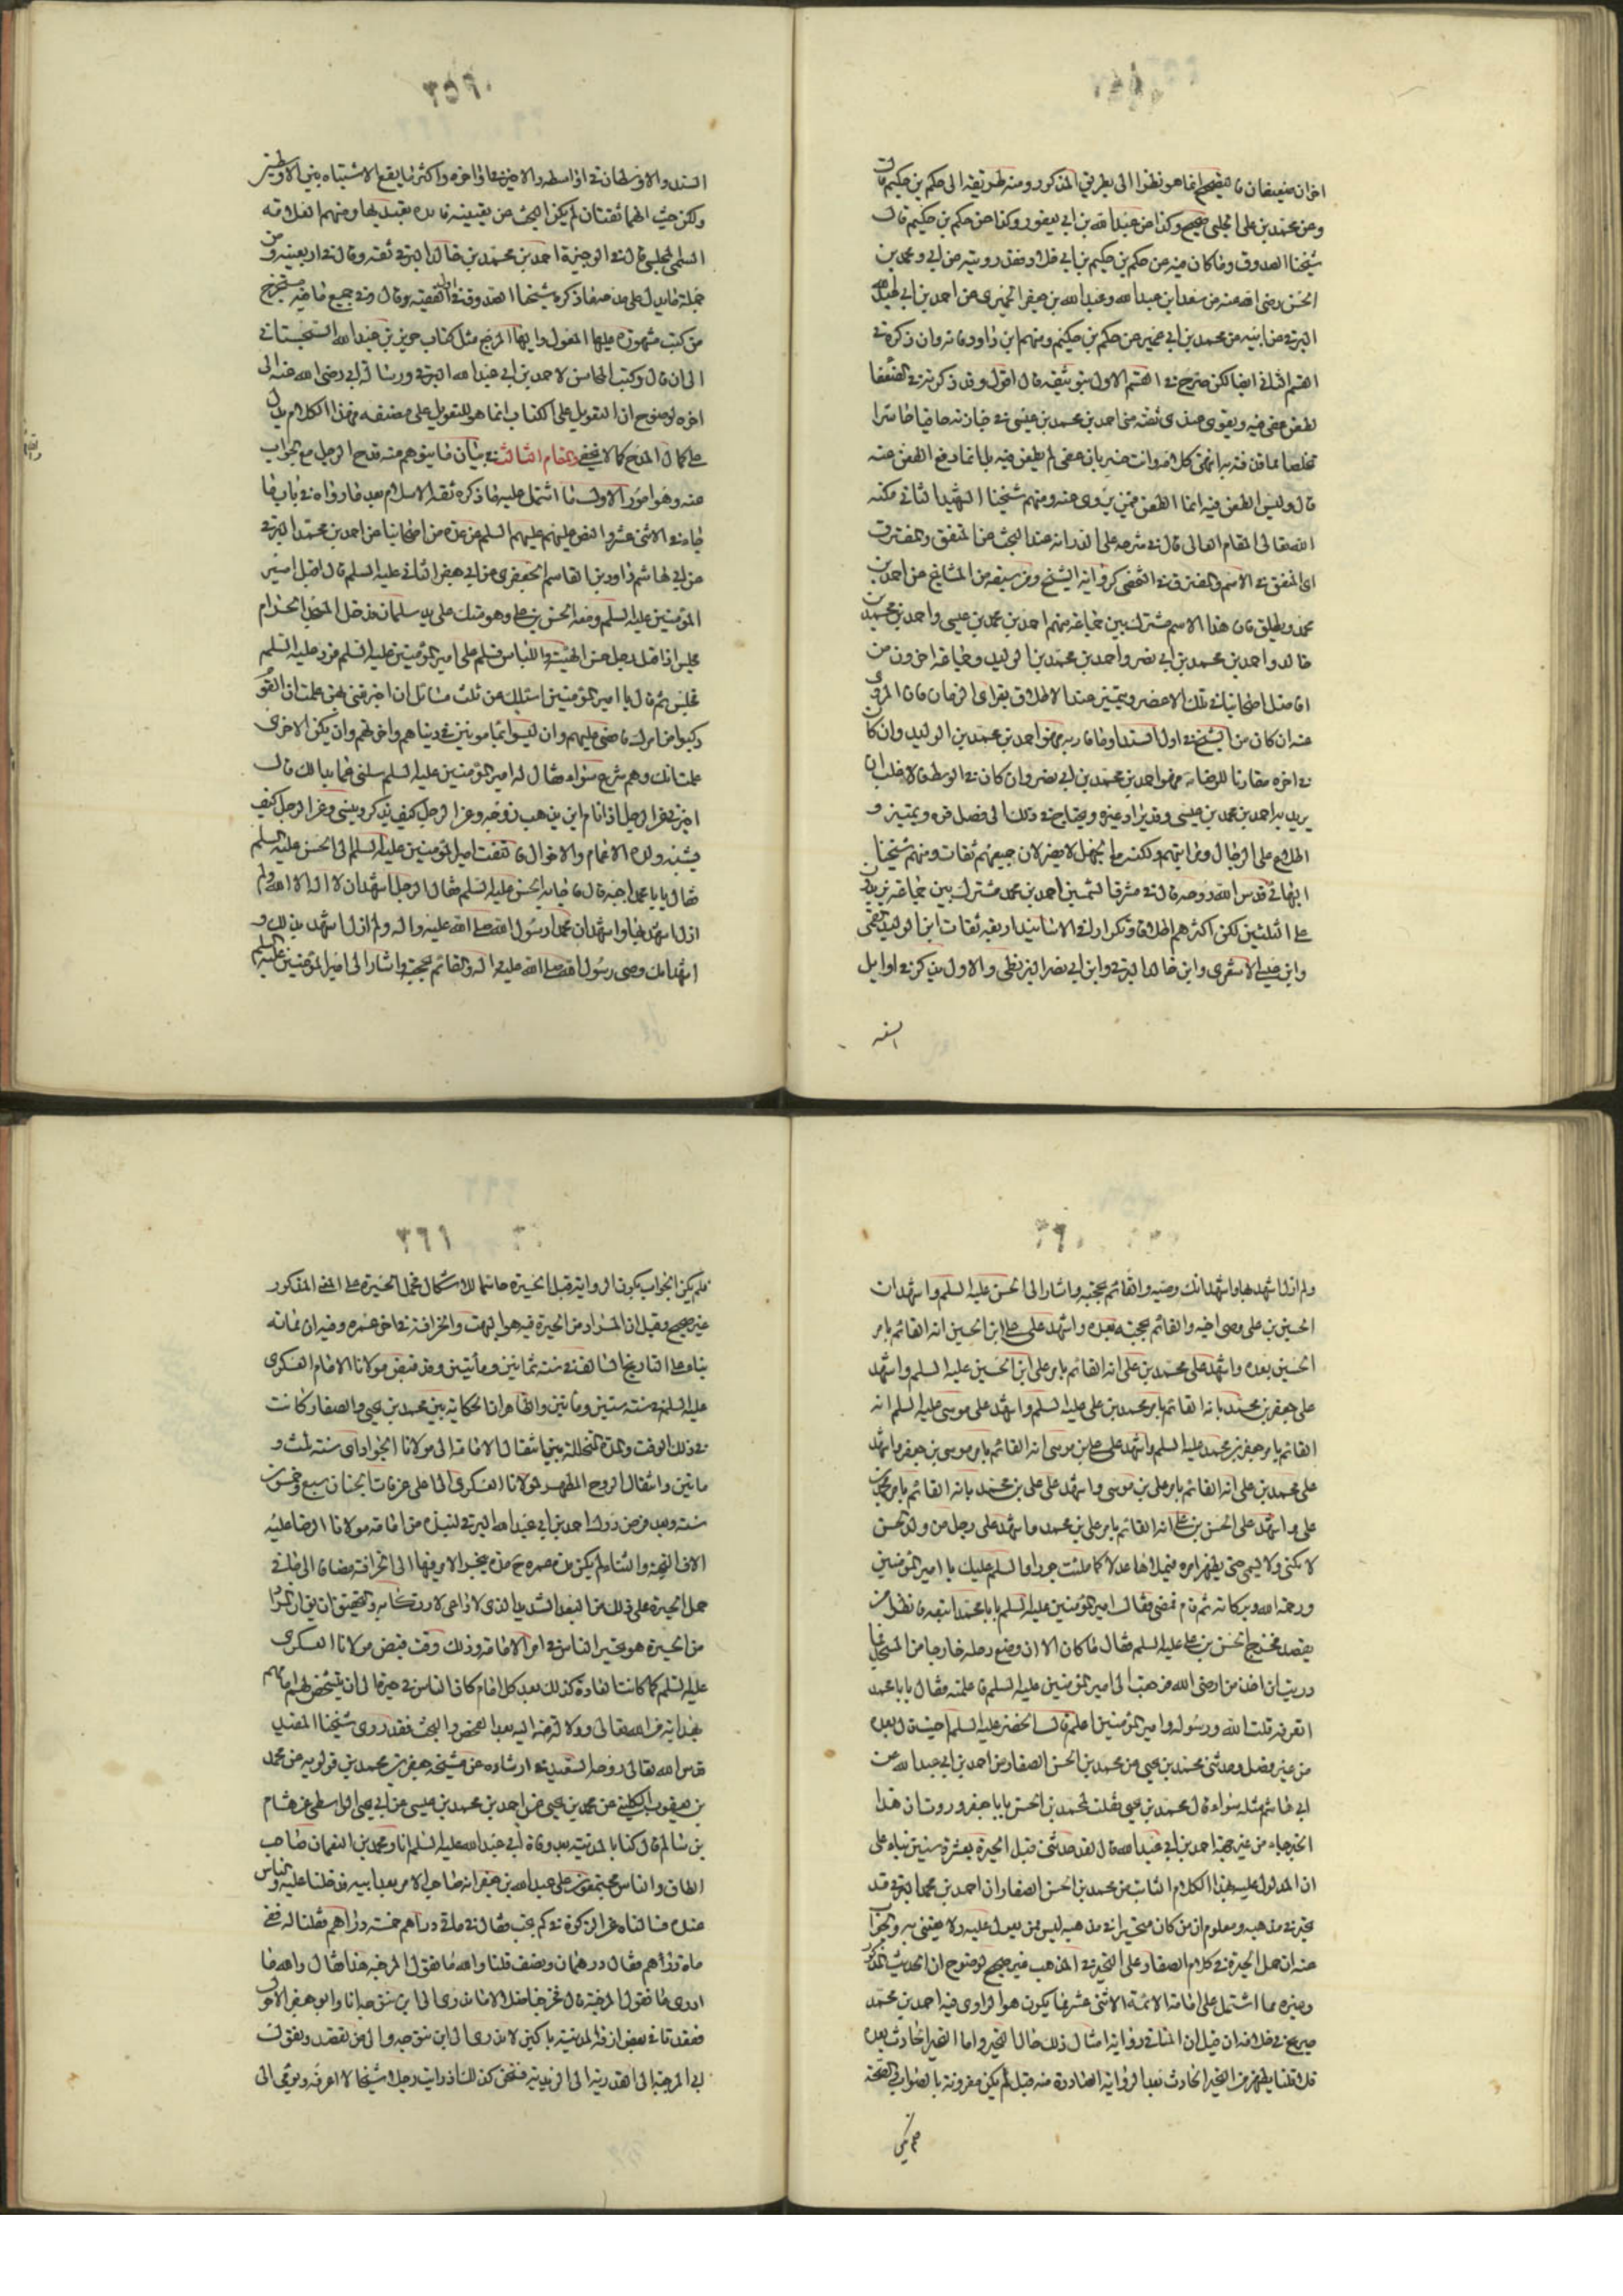 اخران ضعيفان فالتصحيح انما هو نظرا الى طريق المذكور ومنه طريقه الى حكم بن حكيم قال
وعن محمد بن على الحلبى صحيح وكذا عن عبد الله بن ابى يعفور وكذا عن حكم بن حكيم قال
شيخنا الصدوق وما كان فيه عن حكم بن حكيم بن اخى خلاد فقد رويته عن ابى ومحمد بن
الحسن رضى الله عنه عن سعد بن عبد الله وعبد الله بن جعفر الحميرى عن احمد بن ابى عبد الله
البرقى عن ابيه عن محمد بن ابى عمير عن حكم بن حكيم ومنهم ابن داود فانه وان ذكره فى
القسم الثانى ايضا لكن صرح فى القسم الاول بتوثيقه قال اقول وقد ذكرته فى الضعفا
لطعن غض فيه ويقوى عندى ثقته مشى احمد بن محمد بن عيسى فى جنازته حافيا حاسرا
تخلصا مما قذفه به انتهى كلامه وانت خبير بان غض لم يطعن فيه بل انما دفع الطعن عنه
قال وليس الطعن فيه انما الطعن فيمن يروى عنه ومنهم شيخنا الشهيد الثانى مكنه
الله تعالى المقام العالى قال فى شرحه على الدراية عند البحث عن المتفق والمفترق
اى المتفق فى الاسم والمفترق فى الشخص كرواية الشيخ ومن سبقه من المشايخ عن احمد بن
محمد ويطلق فان هذا الاسم مشترك بين جماعة منهم احمد بن محمد بن عيسى واحمد بن محمد بن
خالد واحمد بن محمد بن ابى نصر واحمد بن محمد بن الوليد وجماعة اخرون من
افاضل اصحابنا فى تلك الاعصر ويتميز عند الاطلاق بقراين الزمان فان المروى
عنه ان كان من الشيخ فى اول السند او ما قاربه فهو احمد بن محمد بن الوليد وان كان
فى اخره مقارنا للرضا ع فهو احمد بن محمد بن ابى نصر وان كان فى الوسط فالاغلب ان
يريد به احمد بن محمد بن عيسى وقد يراد غيره ويحتاج فى ذلك الى فضل قوة وتمييز و
اطلاع على الرجال ومراتبهم ولكنه مع الجهل لا يضر لان جميعهم ثقات ومنهم شيخنا
البهائى قدس الله روحه قال فى مشرق الشمسين احمد بن محمد مشترك بين جماعة يزيدون
على الثلثين لكن اكثرهم اطلاقا وتكرارا فى الاسانيد اربعة ثقات ابن الوليد القمى
وابن عيسى الاشعرى وابن خالد البرقى وابن ابى نصر البزنطى والاول يذكر فى اوايل
السند
٣٥٩
السند والاوسطان فى اواسطه والاخير فى اواخره واكثر ما يقع الاشتباه بين الاوسطين
ولكن حيث انهما ثقتان لم يكن البحث عن تعيينه فائدة يعتد بها ومنهم العلامة
السلمى المجلسى قال فى الوجيزة احمد بن محمد بن خالد البرقى ثقة وقال فى اربعينه و من
جملة ما يدل على مدحه ما ذكره شيخنا الصدوق فى اول الفقيه وقال وفى جميع ما فيه مستخرج
من كتب مشهورة عليها المعول واليها المرجع مثل كتاب حريز بن عبد الله السجستانى
الى ان قال وكتب المحاسن لاحمد بن ابى عبد الله البرقى ورسالة ابى رضى الله عنه الى
اخره لوضوح ان التعويل على الكتاب انما هو للتعويل على مصنفه فهذا الكلام يدل
على كمال المدح كما لا يخفى المقام الثالث فى بيان ما يتوهم منه قدح الرجل مع الجواب
عنه وهو امور الاول ما اشتمل عليه ما ذكره ثقة الاسلام بعد ما رواه فى باب ما
جاء فى الاثنى عشر والنص عليهم عليهم السلم عن عدة من اصحابنا عن احمد بن محمد البرقى
عن ابى هاشم داود بن القاسم الجعفرى عن ابى جعفر الثانى عليه السلم قال اقبل امير
المؤمنين عليه السلم ومعه الحسن بن على وهو متك على يد سلمان فدخل المسجد الحرام
فجلس اذ اقبل رجل حسن الهيئة واللباس فسلم على امير المؤمنين عليه السلم فرد عليه السلم
فجلس ثم قال يا امير المؤمنين اسئلك عن ثلث مسائل ان اخبرتنى بهن علمت ان القوم
ركبوا من امرك ما قضى عليهم وان ليسوا بمامونين فى دنياهم واخرتهم وان يكن الاخرى
علمت انك وهم شرع سواء فقال له امير المؤمنين عليه السلم سلنى عما بدا لك قال
اخبرنى عن الرجل اذا نام اين يذهب روحه وعن الرجل كيف يذكر وينسى وعن الرجل كيف
يشبه ولده الاعمام والاخوال فالتفت امير المؤمنين عليه السلم الى الحسن عليه السلم
فقال يا با محمد اجبه قال فاجابه الحسن عليه السلم فقال الرجل اشهد ان لا اله الا الله ولم
ازل اشهد بها واشهد ان محمدا رسول الله صلى الله عليه واله ولم ازل اشهد بذلك و
اشهد انك وصى رسول الله صلى الله عليه واله والقائم بحجته واشار الى امير المؤمنين عليه السلم
٣٦٠
ولم ازل اشهد بها واشهد انك وصيه والقائم بحجته واشار الى الحسن عليه السلم واشهد ان
الحسين بن على وصى اخيه والقائم بحجته بعده واشهد على على ابن الحسين انه القائم بامر
الحسين بعده واشهد على محمد بن على انه القائم بامر على ابن الحسين عليه السلم واشهد
على جعفر بن محمد بانه القائم بامر محمد بن على عليه السلم واشهد على موسى عليه السلم انه
القائم بامر جعفر بن محمد عليه السلم واشهد على على بن موسى انه القائم بامر موسى بن جعفر واشهد
على محمد بن على انه القائم بامر على بن موسى واشهد على على بن محمد بانه القائم بامر محمد بن
على واشهد على الحسن بن على انه القائم بامر على بن محمد واشهد على رجل من ولد الحسن
لا يكنى ولا يسمى حتى يظهر امره فيملاها عدلا كما ملئت جورا والسلم عليك يا امير المؤمنين
ورحمة الله وبركاته ثم قام فمضى فقال امير المؤمنين عليه السلم يا با محمد اتبعه فانظر اين
يقصد فخرج الحسن بن على عليه السلم فقال ما كان الا ان وضع رجله خارجا من المسجد فما
دريت اين اخذ من ارض الله فرجعت الى امير المؤمنين عليه السلم فاعلمته فقال يا با محمد
اتعرفه قلت الله ورسوله وامير المؤمنين اعلم قال الخضر عليه السلم
محمد بن يحيى عن محمد بن الحسن الصفار عن احمد بن ابى عبد الله عن
ابى هاشم مثله سواء قال محمد بن يحيى فقلت لمحمد بن الحسن يا با جعفر وددت ان هذا
الخبر جاء من غير جهة احمد بن ابى عبد الله قال لقد حدثنى قبل الحيرة بعشر سنين بناء على
ان المدلول عليه بهذا الكلام الثابت من محمد بن الحسن الصفار ان احمد بن محمد البرقى قد
تحير فى مذهبه ومعلوم ان من كان متحيرا فى مذهبه ليس ممن يعول عليه ولا يعتنى به والجواب
عنه ان حمل الحيرة فى كلام الصفار على التحير فى المذهب غير صحيح لوضوح ان الحديث المذكور
وغيره مما اشتمل على امامة الائمة الاثنى عشر مما يكون هو الراوى فيه احمد بن محمد
صريح فى خلافه ان قيل ان المنافى رواية امثال ذلك حال التحير واما التحير الحادث بعده
فلا قلنا يظهر من التحير الحادث بعد الرواية الصادرة منه قبل لم يكن مقرونة بالصواب والصحة
فلم يكن
٣٦١
فلم يكن الجواب بكون الرواية قبل الحيرة حاسما للاشكال فحمل الحيرة على المعنى المذكور
غير صحيح وقيل ان المراد من الحيرة فيه هو البهت والخرافة فى اخر عمره وفيه ان فانه
بناء على التاريخ السالف فى سنة ثمانين ومأتين وقد قبض مولانا الامام العسكرى
عليه السلم فى سنة ستين ومأتين والظاهر ان الحكاية بين محمد بن يحيى والصفار كانت
فى ذلك الوقت والمدة المتخللة بين انتقال الامامة الى مولانا الجواد اى سنة ثلث و
مأتين وانتقال الروح المطهر لمولانا العسكرى الى اعلى غرفات الجنان سبع وخمسون
سنة وبعد فرض درك احمد بن ابى عبد الله البرقى لنبذة من امامة مولانا الرضا عليه
الاف التحية والثناء لم يكن من عمره ح مدة ينجر الامر فيها الى الخرافة مضافا الى ما فى
حمل الحيرة على ذلك من البعد الشديد الذى لا داعى لارتكابه والتحقيق ان يق ان المراد
من الحيرة هو تحير الناس فى امر الامامة وذلك وقت قبض مولانا العسكرى
عليه السلم كما كانت العادة كذلك بعد كل امام كان الناس فى حيرة الى ان يتشخص لهم امامهم
بهداية من الله تعالى ودلالة منه اليه بعد الفحص والبحث فقد روى شيخنا المفيد
قدس الله تعالى روحه السعيد فى ارشاده عن شيخه جعفر بن محمد بن قولويه عن محمد
بن يعقوب الكلينى عن محمد بن يحيى عن احمد بن محمد بن عيسى عن ابى يحيى الواسطى عن هشام
بن سالم قال كنا بالمدينة بعد وفاة ابى عبد الله عليه السلم انا ومحمد بن النعمان صاحب
الطاق والناس مجتمعون على عبد الله بن جعفر انه صاحب الامر بعد ابيه فدخلنا عليه والناس
عنده فسالناه عن الزكوة فى كم تجب فقال فى مأتى درهم خمسة دراهم فقلنا له ففى
مأة درهم فقال درهمان ونصف قلنا والله ما تقول المرجئة هذا فقال والله ما
ادرى ما تقول المرجئة قال فخرجنا ضلالا ما ندرى الى اين نتوجه انا وابو جعفر الاحول
فقعدنا فى بعض ازقة المدينة باكين لا ندرى الى اين نتوجه والى من نقصد ونقول
الى المرجئة الى القدرية الى الزيدية فنحن كذلك اذ رايت رجلا شيخا لا اعرفه يومى الى